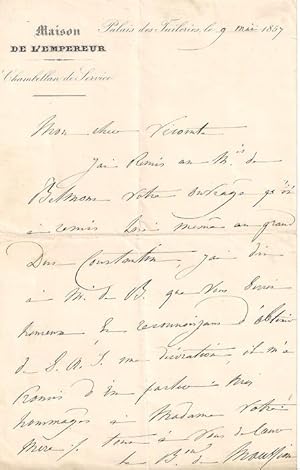 Maison
DE L'EMPEREUR
Chambellan de Service
Palais des Tuileries, le 9 mai 1857
Mon cher Vicomte
J'ai remis au Mis de
Belmont votre ouvrage qu'il
a remis lui même au grand
Duc Constantin, j'ai dit
à Mr de B. que vous seriez
heureux et reconnaissant d'obtenir
de S. A. I. une décoration, il m'a
promis d'en parler
hommages à Madame votre
mère tout à vous de cœur
le Bon de